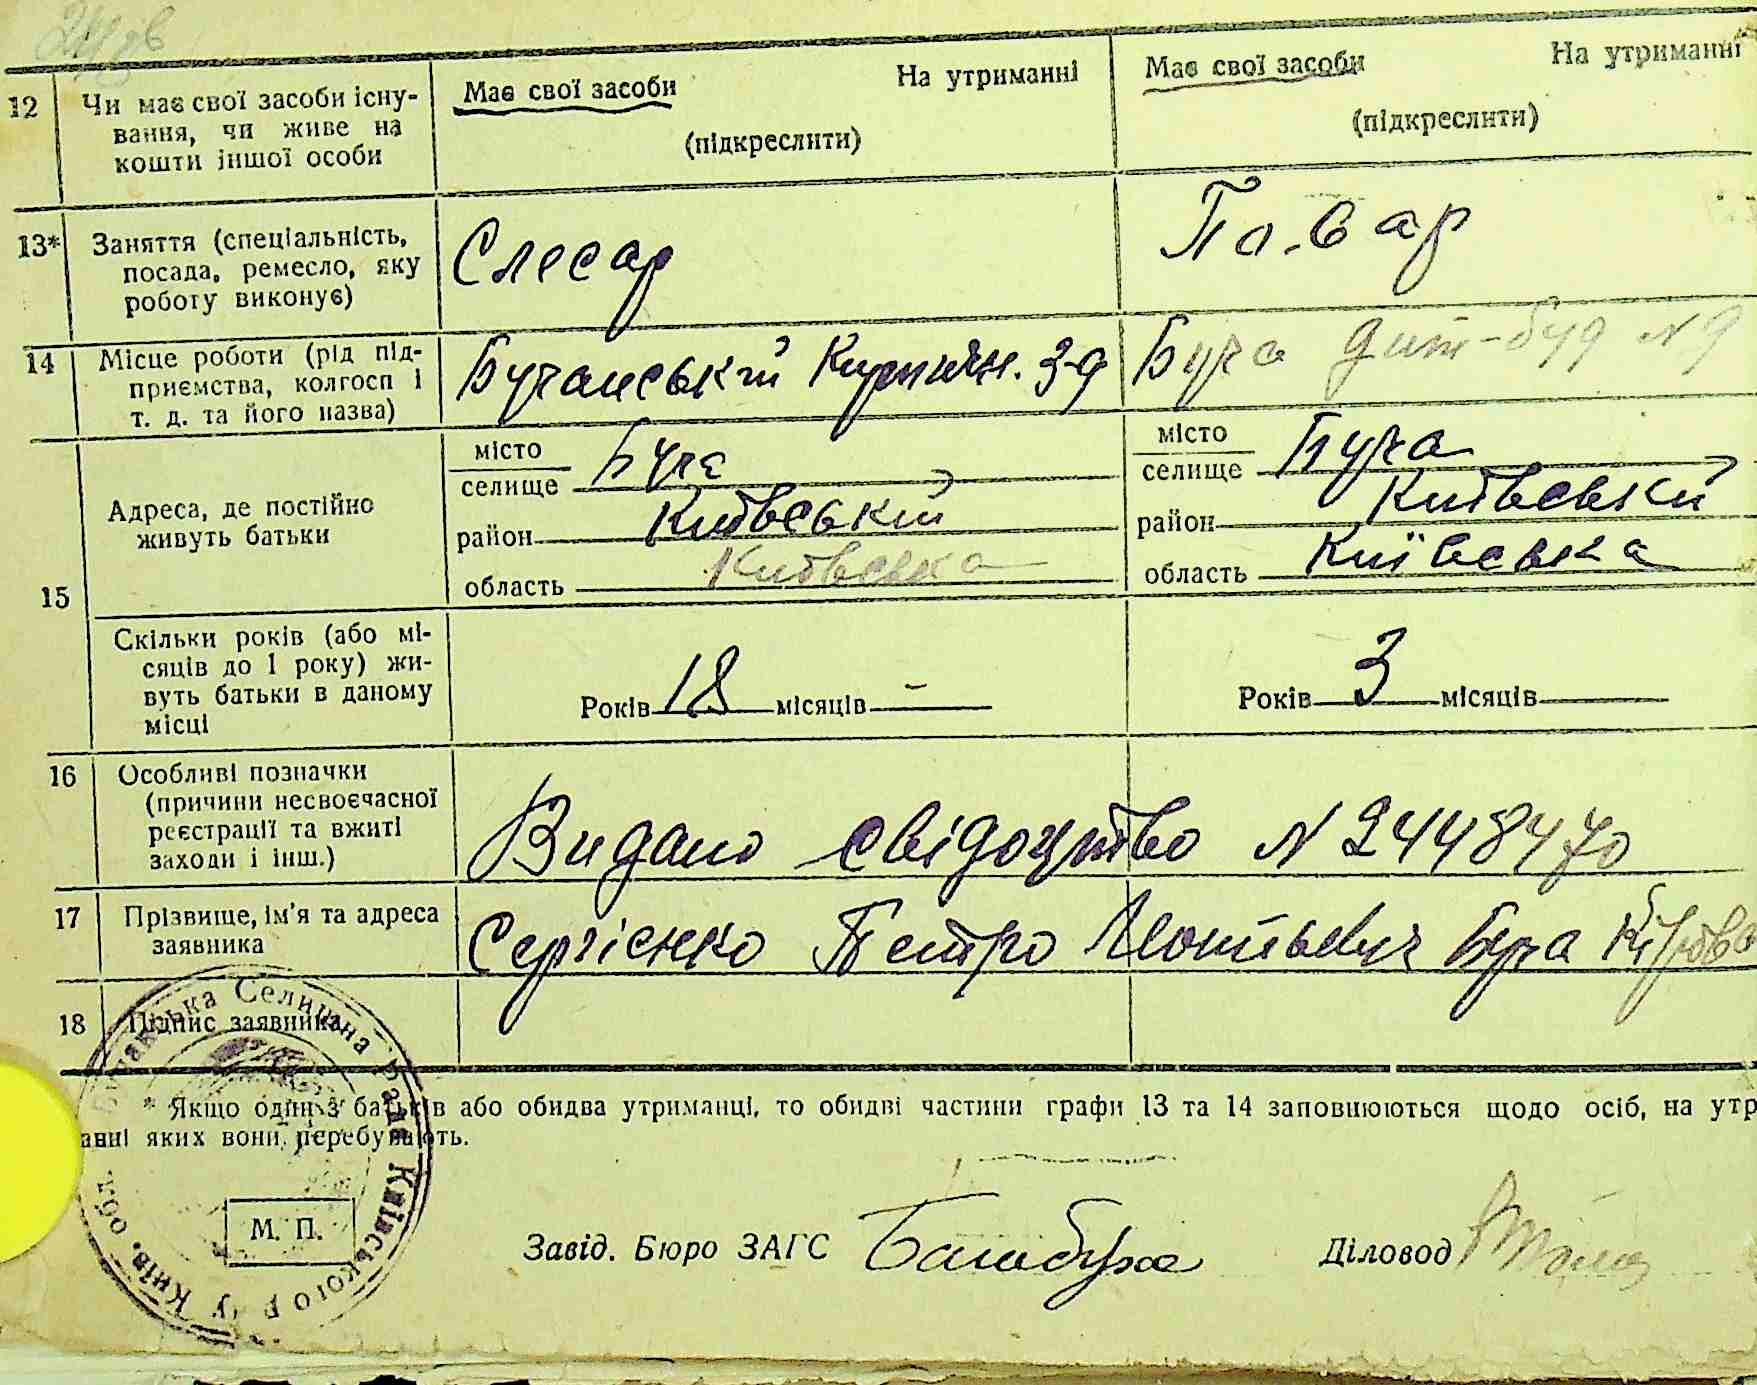 12 Чи має свої засоби існу-
вання, чи живе на
кошти іншої особи
Має свої засоби На утриманні
(підкреслити)
Має свої засоби На утриманні
(підкреслити)
13* Заняття (спеціальність,
посада, ремесло, яку
роботу виконує)
Слесар
Повар
14 Місце роботи (рід під-
приємства, колгосп і
т. д. та його назва)
Бучанський Кирпичн. З-д
Буча дит-буд N 9
15 Адреса, де постійно
живуть батьки
місто
селище Буча
район Київський
область Київська
місто
селище Буча
район Київський
область Київська
Скільки років (або мі-
сяців до 1 року) жи-
вуть батьки в даному
місці
Років 18 місяців –
Років 3 місяців
16 Особливі позначки
(причини несвоєчасної
реєстрації та вжиті
заходи і інш.)
Видано свідоцтво N 2448470
17 Прізвище, ім'я та адреса
заявника
Сергієнко Петро Буча
18 Підпис заявника
* Якщо один з батьків або обидва утриманці, то обидві частини графи 13 та 14 заповнюються щодо осіб, на утр
анні яких вони перебувають.
М. П.
Завід. Бюро ЗАГС
Діловод
Селищна Рада Київського р-ну Київ. обл.